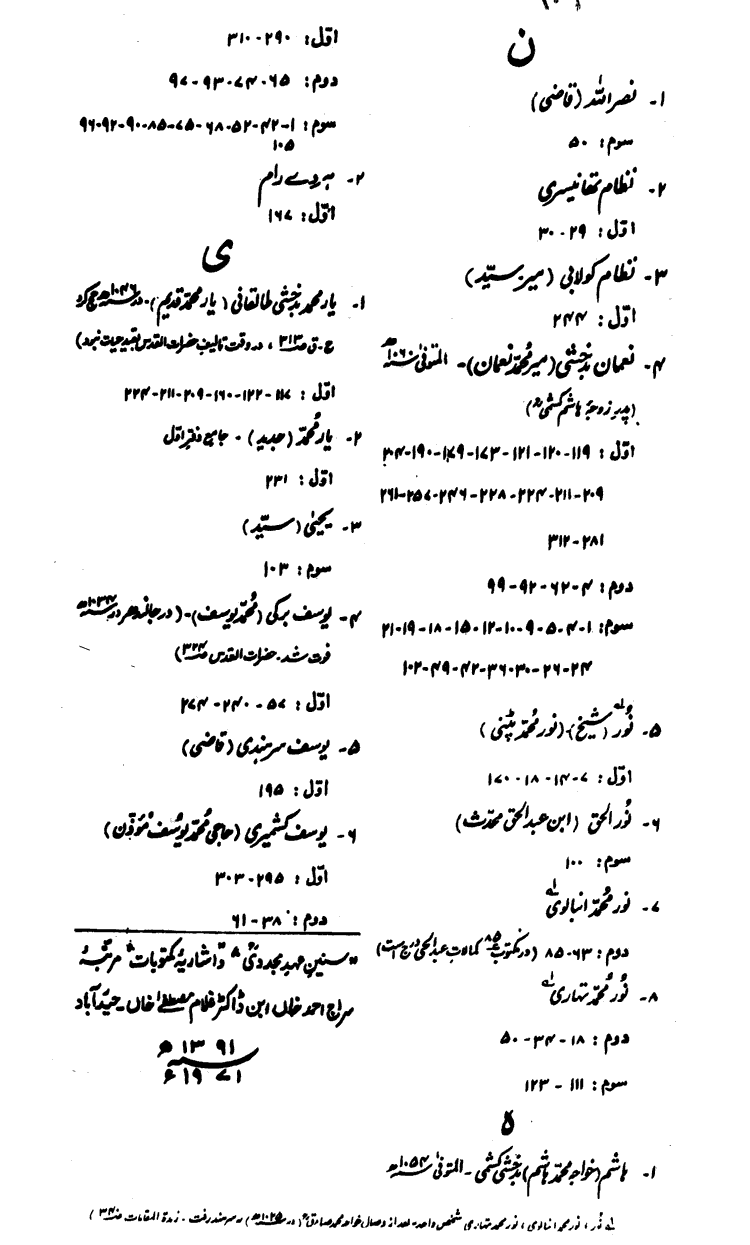 ن
۱۔ نصر اللہ (قاضی)
سوم: ۵۰
۲۔ نظام تھانیسری
اوّل: ۲۹-۳۰
۳۔ نظام کولابی (میر سیّد)
اوّل: ۲۴۴
۴۔ نعمان بدخشی (میر محمّد نعمان)۔ المتوفیٰ ۱۰۶۰ھ
(پدر زوجۂ ہاشم کشمی)
اوّل: ۱۱۹-۱۲۰-۱۲۱-۱۷۳-۱۷۹-۱۹۰-۲۰۴
۲۰۹-۲۱۱-۲۲۴-۲۲۸-۲۴۶-۲۵۷-۲۶۱
۲۸۱-۳۱۲
دوم: ۴-۶۲-۹۲-۹۹
سوم: ۱-۴-۵-۹-۱۰-۱۲-۱۵-۱۸-۱۹-۲۱
۲۴-۲۶-۳۰-۳۶-۴۲-۴۹-۱۰۲
۵۔ نور (شیخ)۔ (نور محمّد پٹنی)
اوّل: ۷-۱۴-۱۸-۱۷۰
۶۔ نُور الحق (ابن عبد الحق محدّث)
سوم: ۱۰۰
۷۔ نور محمّد انبالوی
دوم: ۶۳-۸۵ (در مکتوب ۸۵ کمالات عبد الحی درج است)
۸۔ نُور محمّد تہاری
دوم: ۱۸-۳۴-۵۰
سوم: ۱۱۱-۱۲۳
ہ
۱۔ ہاشم (خواجہ محمّد ہاشم) بدخشی کشمی۔ المتوفیٰ ۱۰۵۴ھ
اوّل: ۲۹۰-۳۱۰
دوم: ۶۵-۷۴-۹۳-۹۷
سوم: ۱-۴۲-۵۲-۶۸-۷۵-۸۵-۹۰-۹۲-۹۶
۱۰۵
۲۔ ہردے رام
اوّل: ۱۶۷
ی
۱۔ یار محمد بدخشی طالقانی (یار محمّد قدیم)۔ در ۱۰۴۶ھ حج کرد
ح-ق ص ۳۱۳، در وقت تالیف حضرات القدس بقید حیات نبود)
اوّل: ۱۱۷-۱۲۲-۱۶۰-۲۰۹-۲۱۱-۲۲۴
۲۔ یار محمّد (جدید)۔ جامع دفتر اوّل
اوّل: ۲۳۱
۳۔ یحییٰ (سیّد)
سوم: ۱۰۳
۴۔ یوسف برکی (محمّد یوسف)۔ (در جالندھر در ۱۰۳۴ھ
فوت شد۔ حضرات القدس ص ۳۲۴)
اوّل: ۵۷-۲۴۰-۲۷۴
۵۔ یوسف سرہندی (قاضی)
اوّل: ۱۹۵
۶۔ یوسف کشمیری (حاجی محمّد یوسف مؤذن)
اوّل: ۲۹۵-۳۰۳
دوم: ۳۸-۶۱
"سنینِ عہدِ مجددی" و "اشاریۂ مکتوبات" مرتّبۂ
سراج احمد خاں ابن ڈاکٹر غلام مصطفےٰ خاں۔ حیدرآباد
۱۳۹۱ھ
۱۹۷۱ء
نُور، نور محمد انبالوی، نور محمد تہاری شخص واحد۔ بعد از وصال خواجہ محمد صادق (در ۱۰۲۵ھ) بہ سرہند رفت۔ زبدۃ المقامات ص ۳۴)